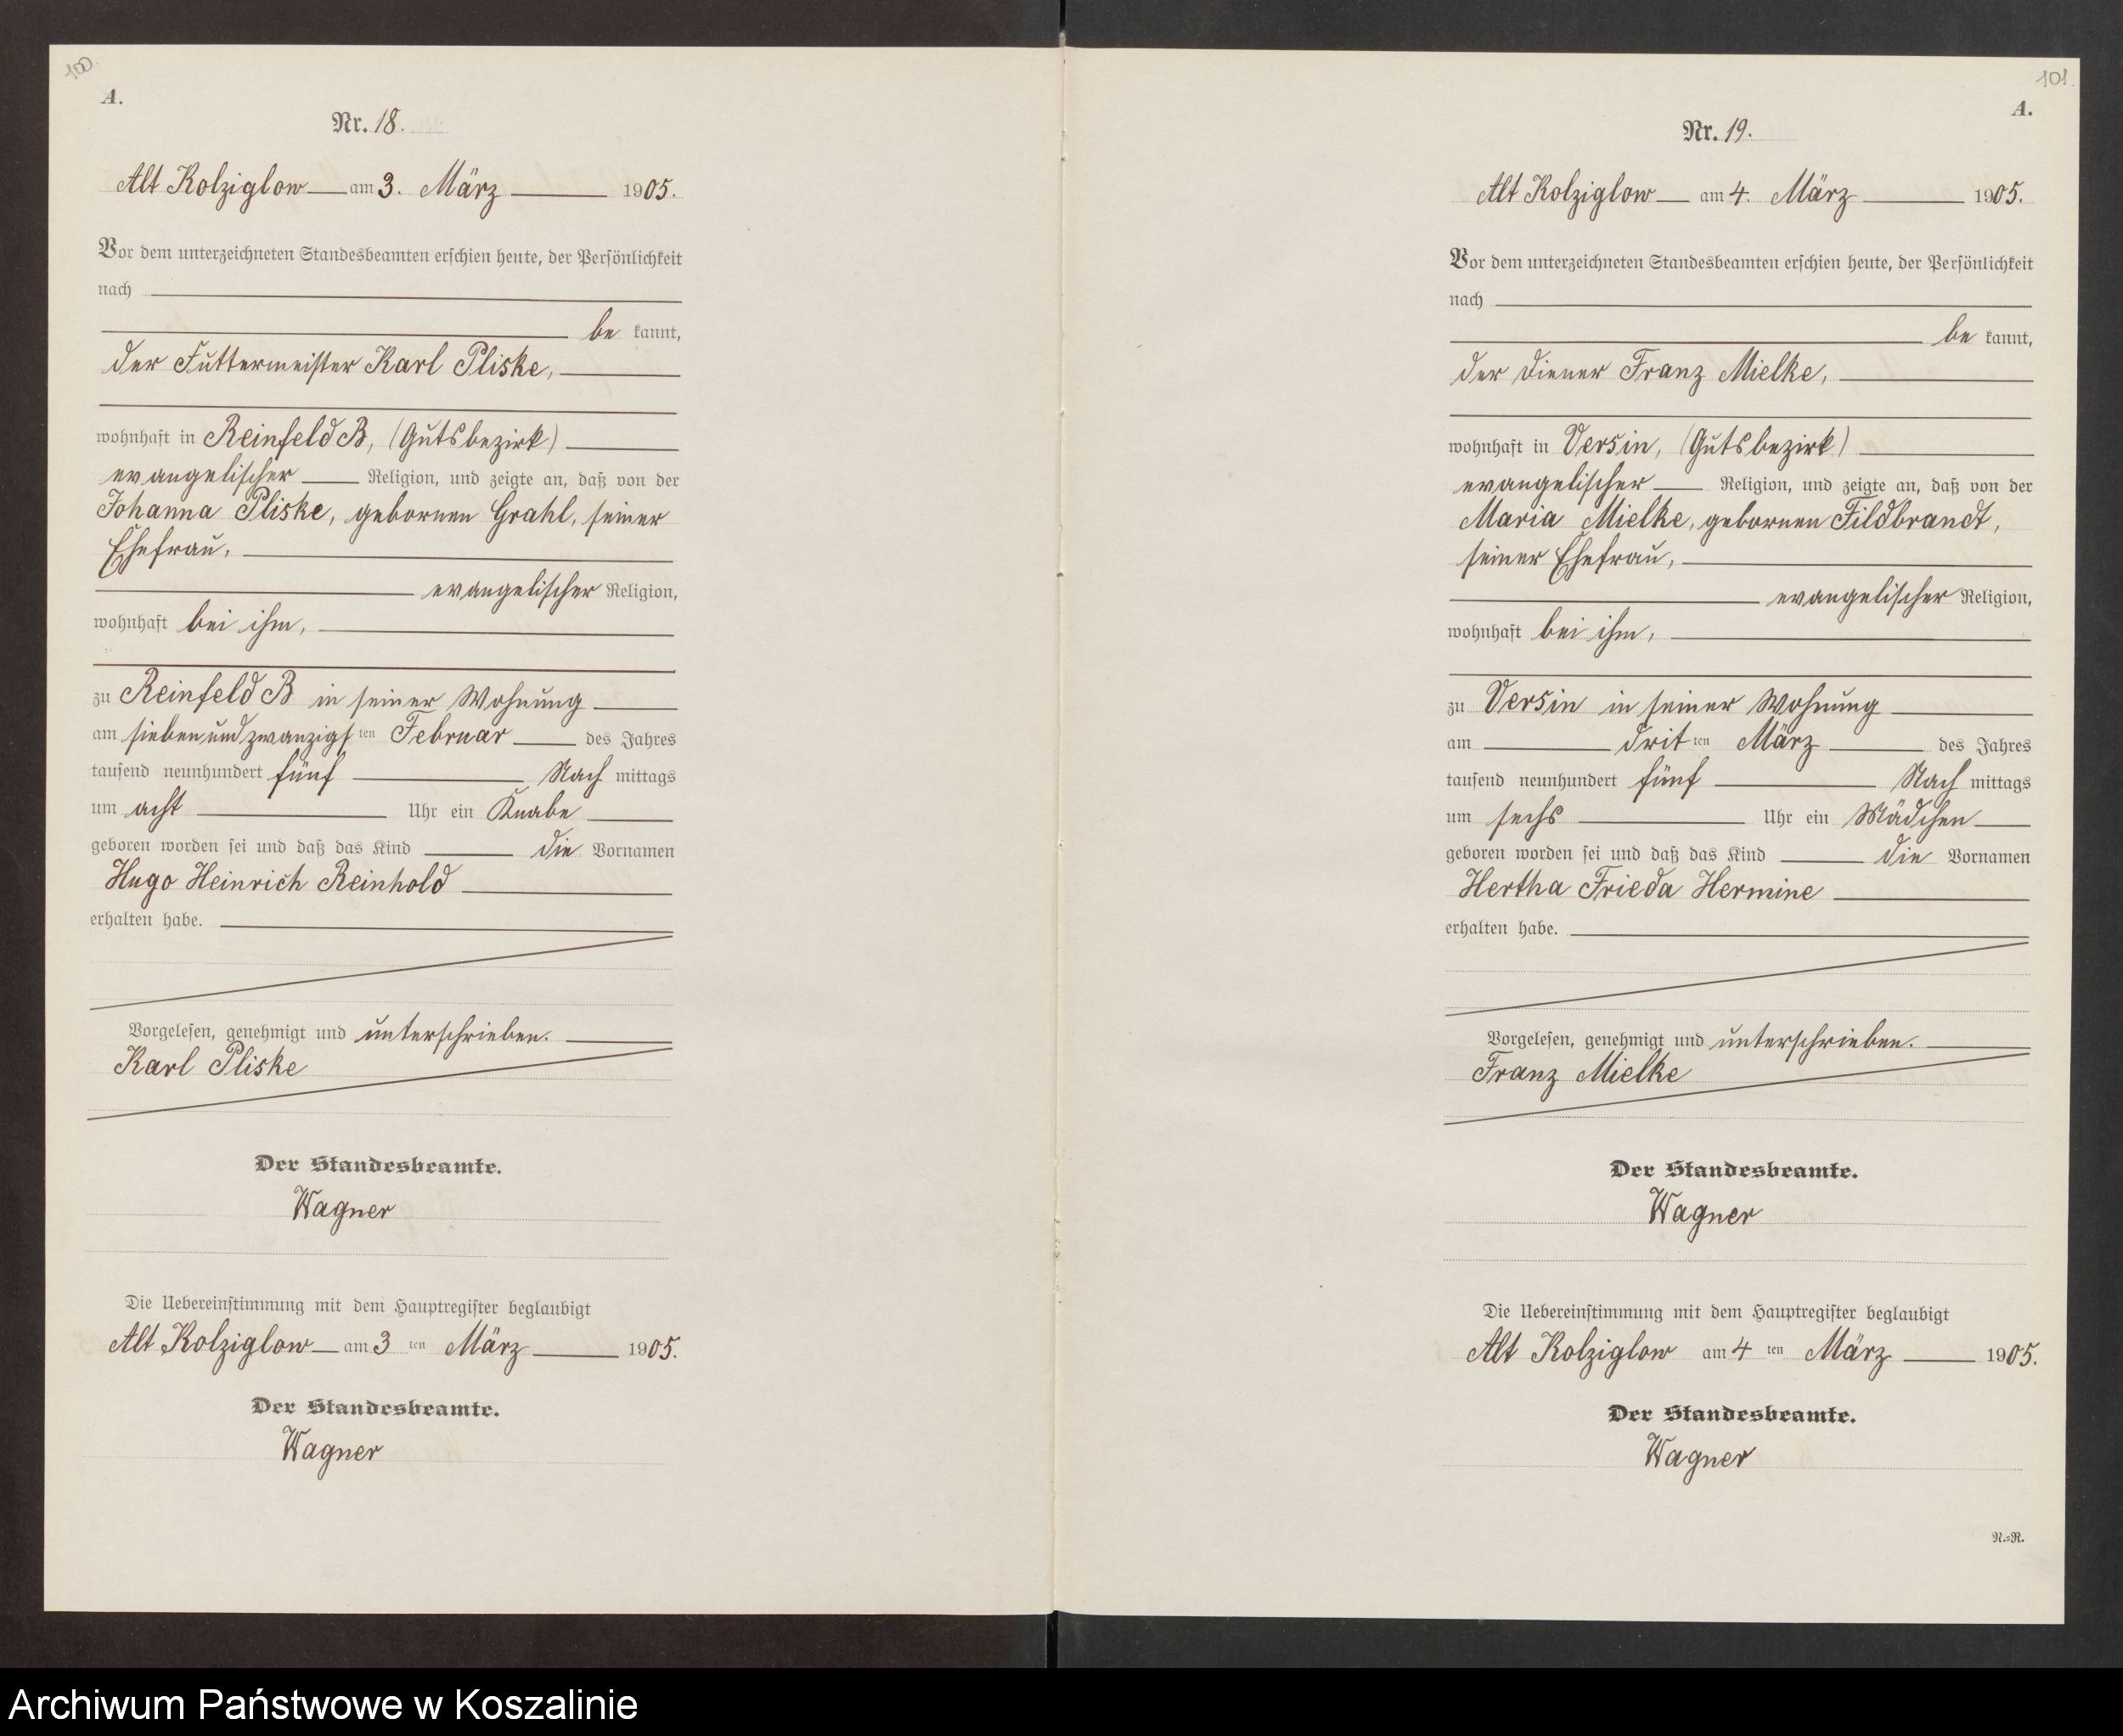 100.
A.
Nr. 18.
Alt Kolziglow am 3. März 1905.
Vor dem unterzeichneten Standesbeamten erschien heute, der Persönlichkeit
nach
be kannt,
der Futtermeister Karl Pliske,
wohnhaft in Reinfeld B, (Gutsbezirk)
evangelischer Religion, und zeigte an, daß von der
Johanna Pliske, gebornen Grahl, seiner
Ehefrau,
evangelischer Religion,
wohnhaft bei ihm,
zu Reinfeld B in seiner Wohnung
am siebenundzwanzigsten Februar des Jahres
tausend neunhundert fünf Nach mittags
um acht Uhr ein Knabe
geboren worden sei und daß das Kind die Vornamen
Hugo Heinrich Reinhold
erhalten habe.
Vorgelesen, genehmigt und unterschrieben.
Karl Pliske
Der Standesbeamte.
Wagner
Die Uebereinstimmung mit dem Hauptregister beglaubigt
Alt Kolziglow am 3 ten März 1905.
Der Standesbeamte.
Wagner
101.
A.
Nr. 19.
Alt Kolziglow am 4. März 1905.
Vor dem unterzeichneten Standesbeamten erschien heute, der Persönlichkeit
nach
be kannt,
der Diener Franz Mielke,
wohnhaft in Versin, (Gutsbezirk)
evangelischer Religion, und zeigte an, daß von der
Maria Mielke, gebornen Fildbrandt,
seiner Ehefrau,
evangelischer Religion,
wohnhaft bei ihm,
zu Versin in seiner Wohnung
am dritten März des Jahres
tausend neunhundert fünf Nach mittags
um sechs Uhr ein Mädchen
geboren worden sei und daß das Kind die Vornamen
Hertha Frieda Hermine
erhalten habe.
Vorgelesen, genehmigt und unterschrieben.
Franz Mielke
Der Standesbeamte.
Wagner
Die Uebereinstimmung mit dem Hauptregister beglaubigt
Alt Kolziglow am 4 ten März 1905.
Der Standesbeamte.
Wagner
N.=R.
Archiwum Państwowe w Koszalinie